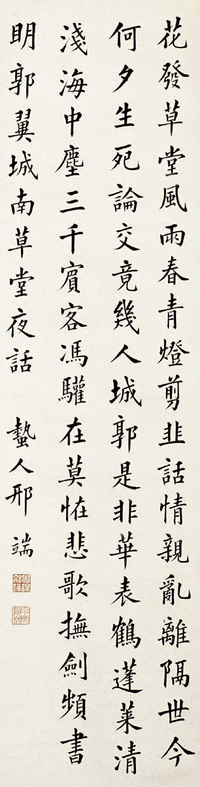 花發草堂風雨春青燈剪韭話情親亂離隔世今
何夕生死論交竟幾人城郭是非華表鶴蓬萊清
淺海中塵三千賓客馮驩在莫恠悲歌撫劍頻書
明郭翼城南草堂夜話 蟄人邢端